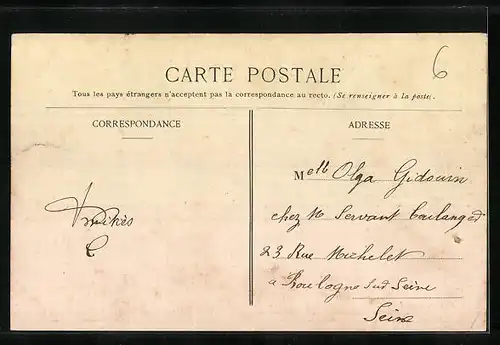 6
CARTE POSTALE
Tous les pays étrangers n'acceptent pas la correspondance au recto. (Se renseigner à la poste).
CORRESPONDANCE
ADRESSE
Melle Olga Gidouin
chez Mr Servant boulanger
23 Rue Michelet
a Boulogne sur Seine
Seine